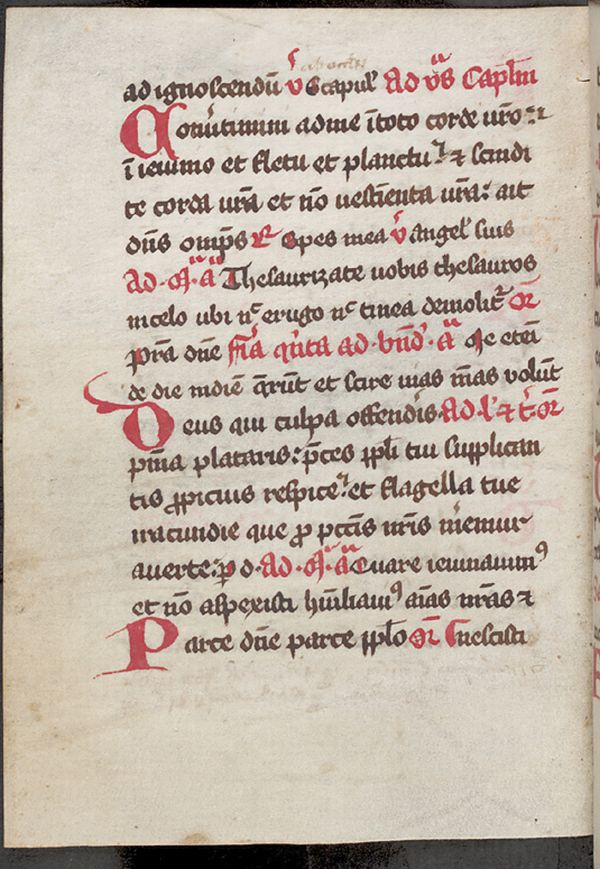 ad ignoscendū v̄ Scapul' Ad v̄s Caplm
Conūtimini ad me ī toto corde vr̄o
ī ieiunio et fletu et planctu ⁊ scindi
te corda vr̄a et nō vestīenta vr̄a: ait
dn̄s om̄ps R Spes mea v̄ Angel' suis
Ad m a Thesaurizate vobis thesauros
in celo ubi n erugo n tinea demolit' or̄
pr̄a dn̄e fr̄ia qn̄ta ad bn̄d' a Me eteī
de die in diē qr̄unt et scire vias m̄as volūt
Deus qui culpa offendis Ad l' ⁊ t' or̄
pn̄ia plataris: p̄ces ppl'i tui supplican
tis ppicius respice: et flagella tue
iracundie que p pcc̄is nr̄is m̄emur
averte: p d Ad m a Quare ieiunavim⁹
et nō aspexisti hūiliavim⁹ aīas nr̄as ⁊
Parce dn̄e parce pplo or̄ nescisti